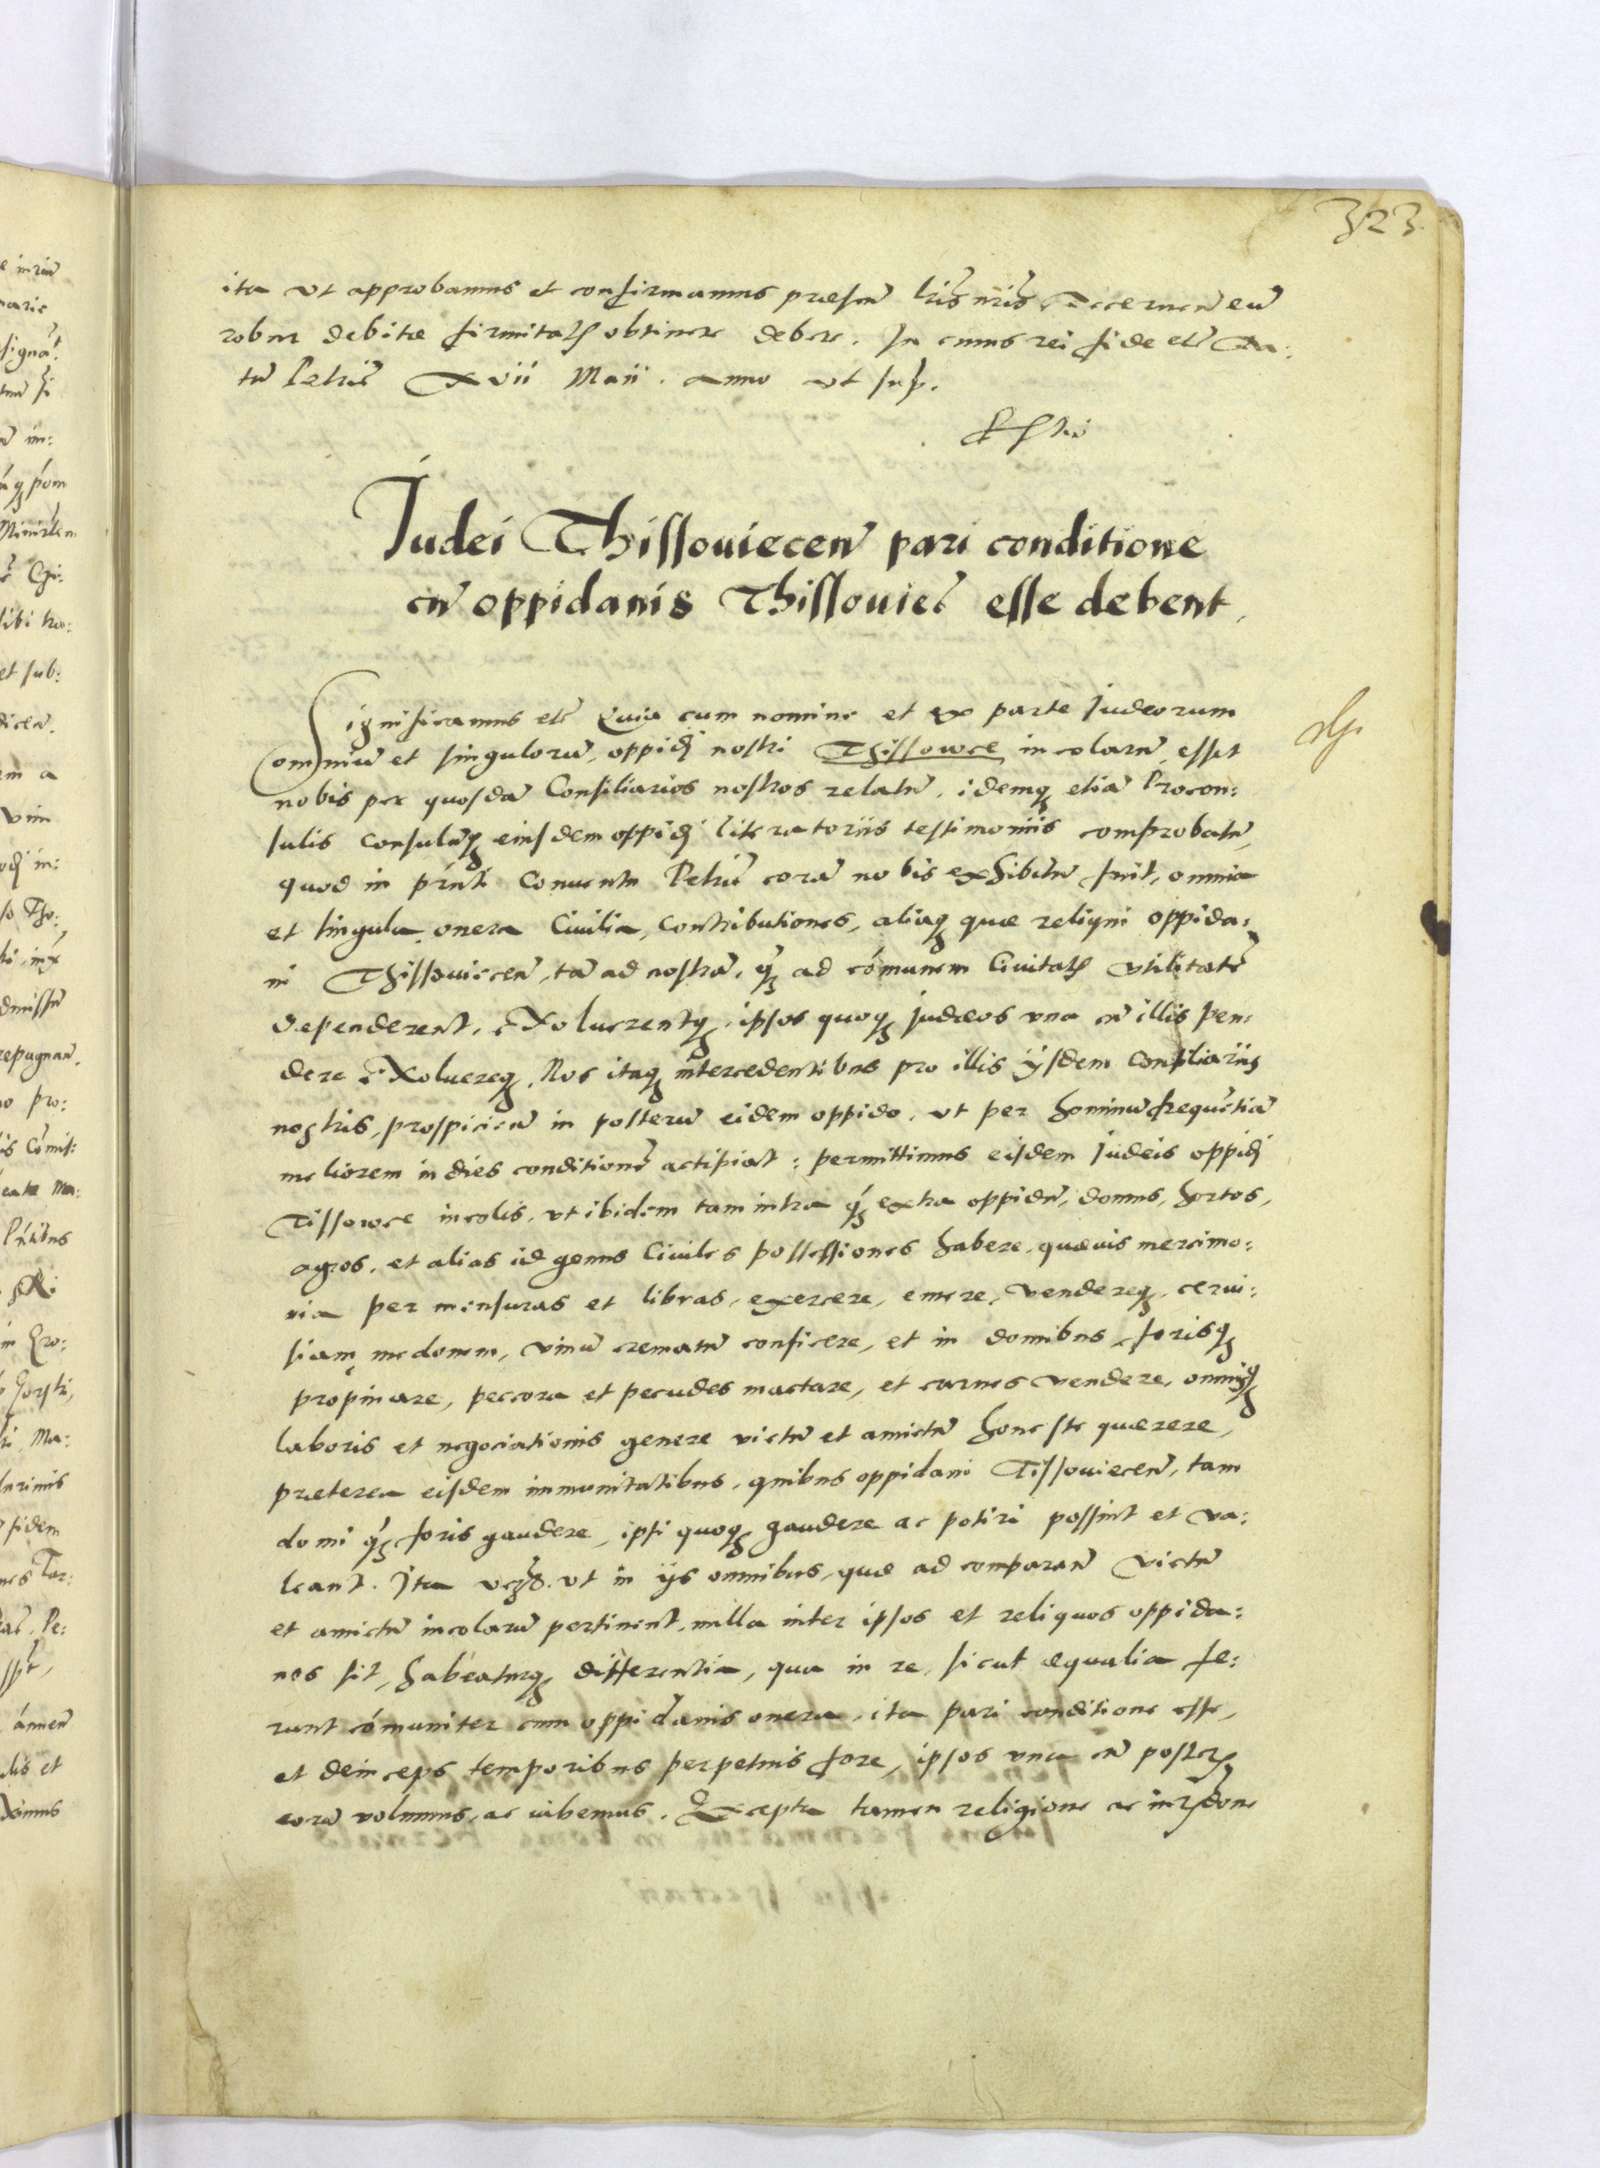 323
ita vt approbamus et confirmamus præsen̄ lris nris Decernen̄ eū
robur debitæ firmitatis obtinere debere. In cuius rei fide etc̄ Da:
tū Petric̄ xvii Maii. anno vt sup.
Judei Thissouiecen̄ pari conditione
cū oppidanis Thissouiec̄ esse debent.
Significamus etc̄ Quia cum nomine et ex parte Judeorum
omniū et singulorū, oppidi nostri Thissowce incolarū, esset
nobis per quosdā Consiliarios nostros relatū, idemq etiā Procon:
sulis Consulūq eiusdem oppidi literatoriis testimoniis comprobatū,
quod in pr̄nti Conuentu Petric̄ corā nobis exhibitū fuit, omnia
et singula onera Ciuilia, Contributiones, aliaq quæ reliqui oppida:
ni Thissouiecen̄, tā ad nostrā, q̄ ad cōmunem Ciuitatis vtilitatē
dependerent, exoluerentq, ipsos quoq Judæos vna cū illis pen:
dere exoluereq, Nos itaq intercedentibus pro illis ÿsdem Consiliariis
nostris, prospicien̄ in posterū eidem oppido, vt per hominū frequentiā
meliorem in dies conditionē accipiat: permittimus eisdem Judeis oppidi
Tissowce incolis, vt ibidem tam intra q̄ extra oppidū, domus, hortos,
agros, et alias id genus Ciuiles possessiones habere, quæuis mercimo:
nia per mensuras et libras, exercere, emere, vendereq, cerui:
siam, medonem, vinū crematū conficere, et in domibus, forisq
propinare, peccora et pecudes mactare, et carnes vendere, omniq
laboris et negociationis genere victū et amictū honeste quærere,
præterea eisdem immunitatibus, quibus oppidani Tissouiecen̄, tam
domi q̄ foris gaudere, ipsi quoq gaudere ac potiri possint et va:
leant. Ita vt in ijs omnibus, quæ ad comparan̄ victū
et amictū incolarū pertinent, nulla inter ipsos et reliquos oppida:
nos sit, habeaturq differentia, qua in re, sicut æqualia fe:
runt cōmuniter cum oppidanis onera, ita pari conditione esse,
et deinceps temporibus perpetuis fore, ipsos vna cū posteris
eorū volumus, ac iubemus. Excepta tamen religione ac